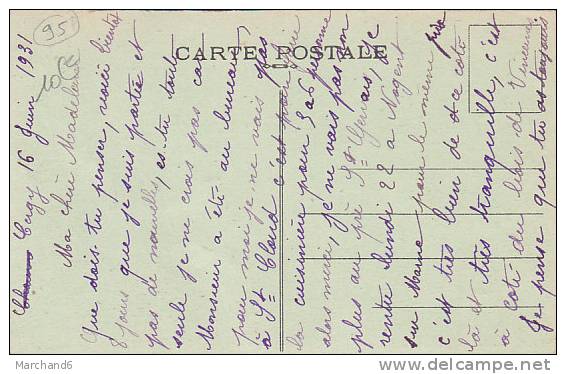 95
CARTE POSTALE
Cergy 16 Juin 1931
Ma chère Madeleine
Que dois-tu penser, voici bientôt
8 jours que je suis partie et
pas de nouvelles, es-tu toute
seule je ne crois pas car
Monsieur a été au bureau,
pour moi je ne vais pas
à St Cloud c'est pour faire
la cuisinière pour 3 personnes
alors merci, je ne vais pas non
plus au pré St Gervais, je
rentre lundi 22 a Nogent
sur Marne pour le même prix
c'est très bien de ce coté
là et très tranquille, c'est
à coté du bois de Vincennes
Je pense que tu as toujours
Marchand6
delcampe.net